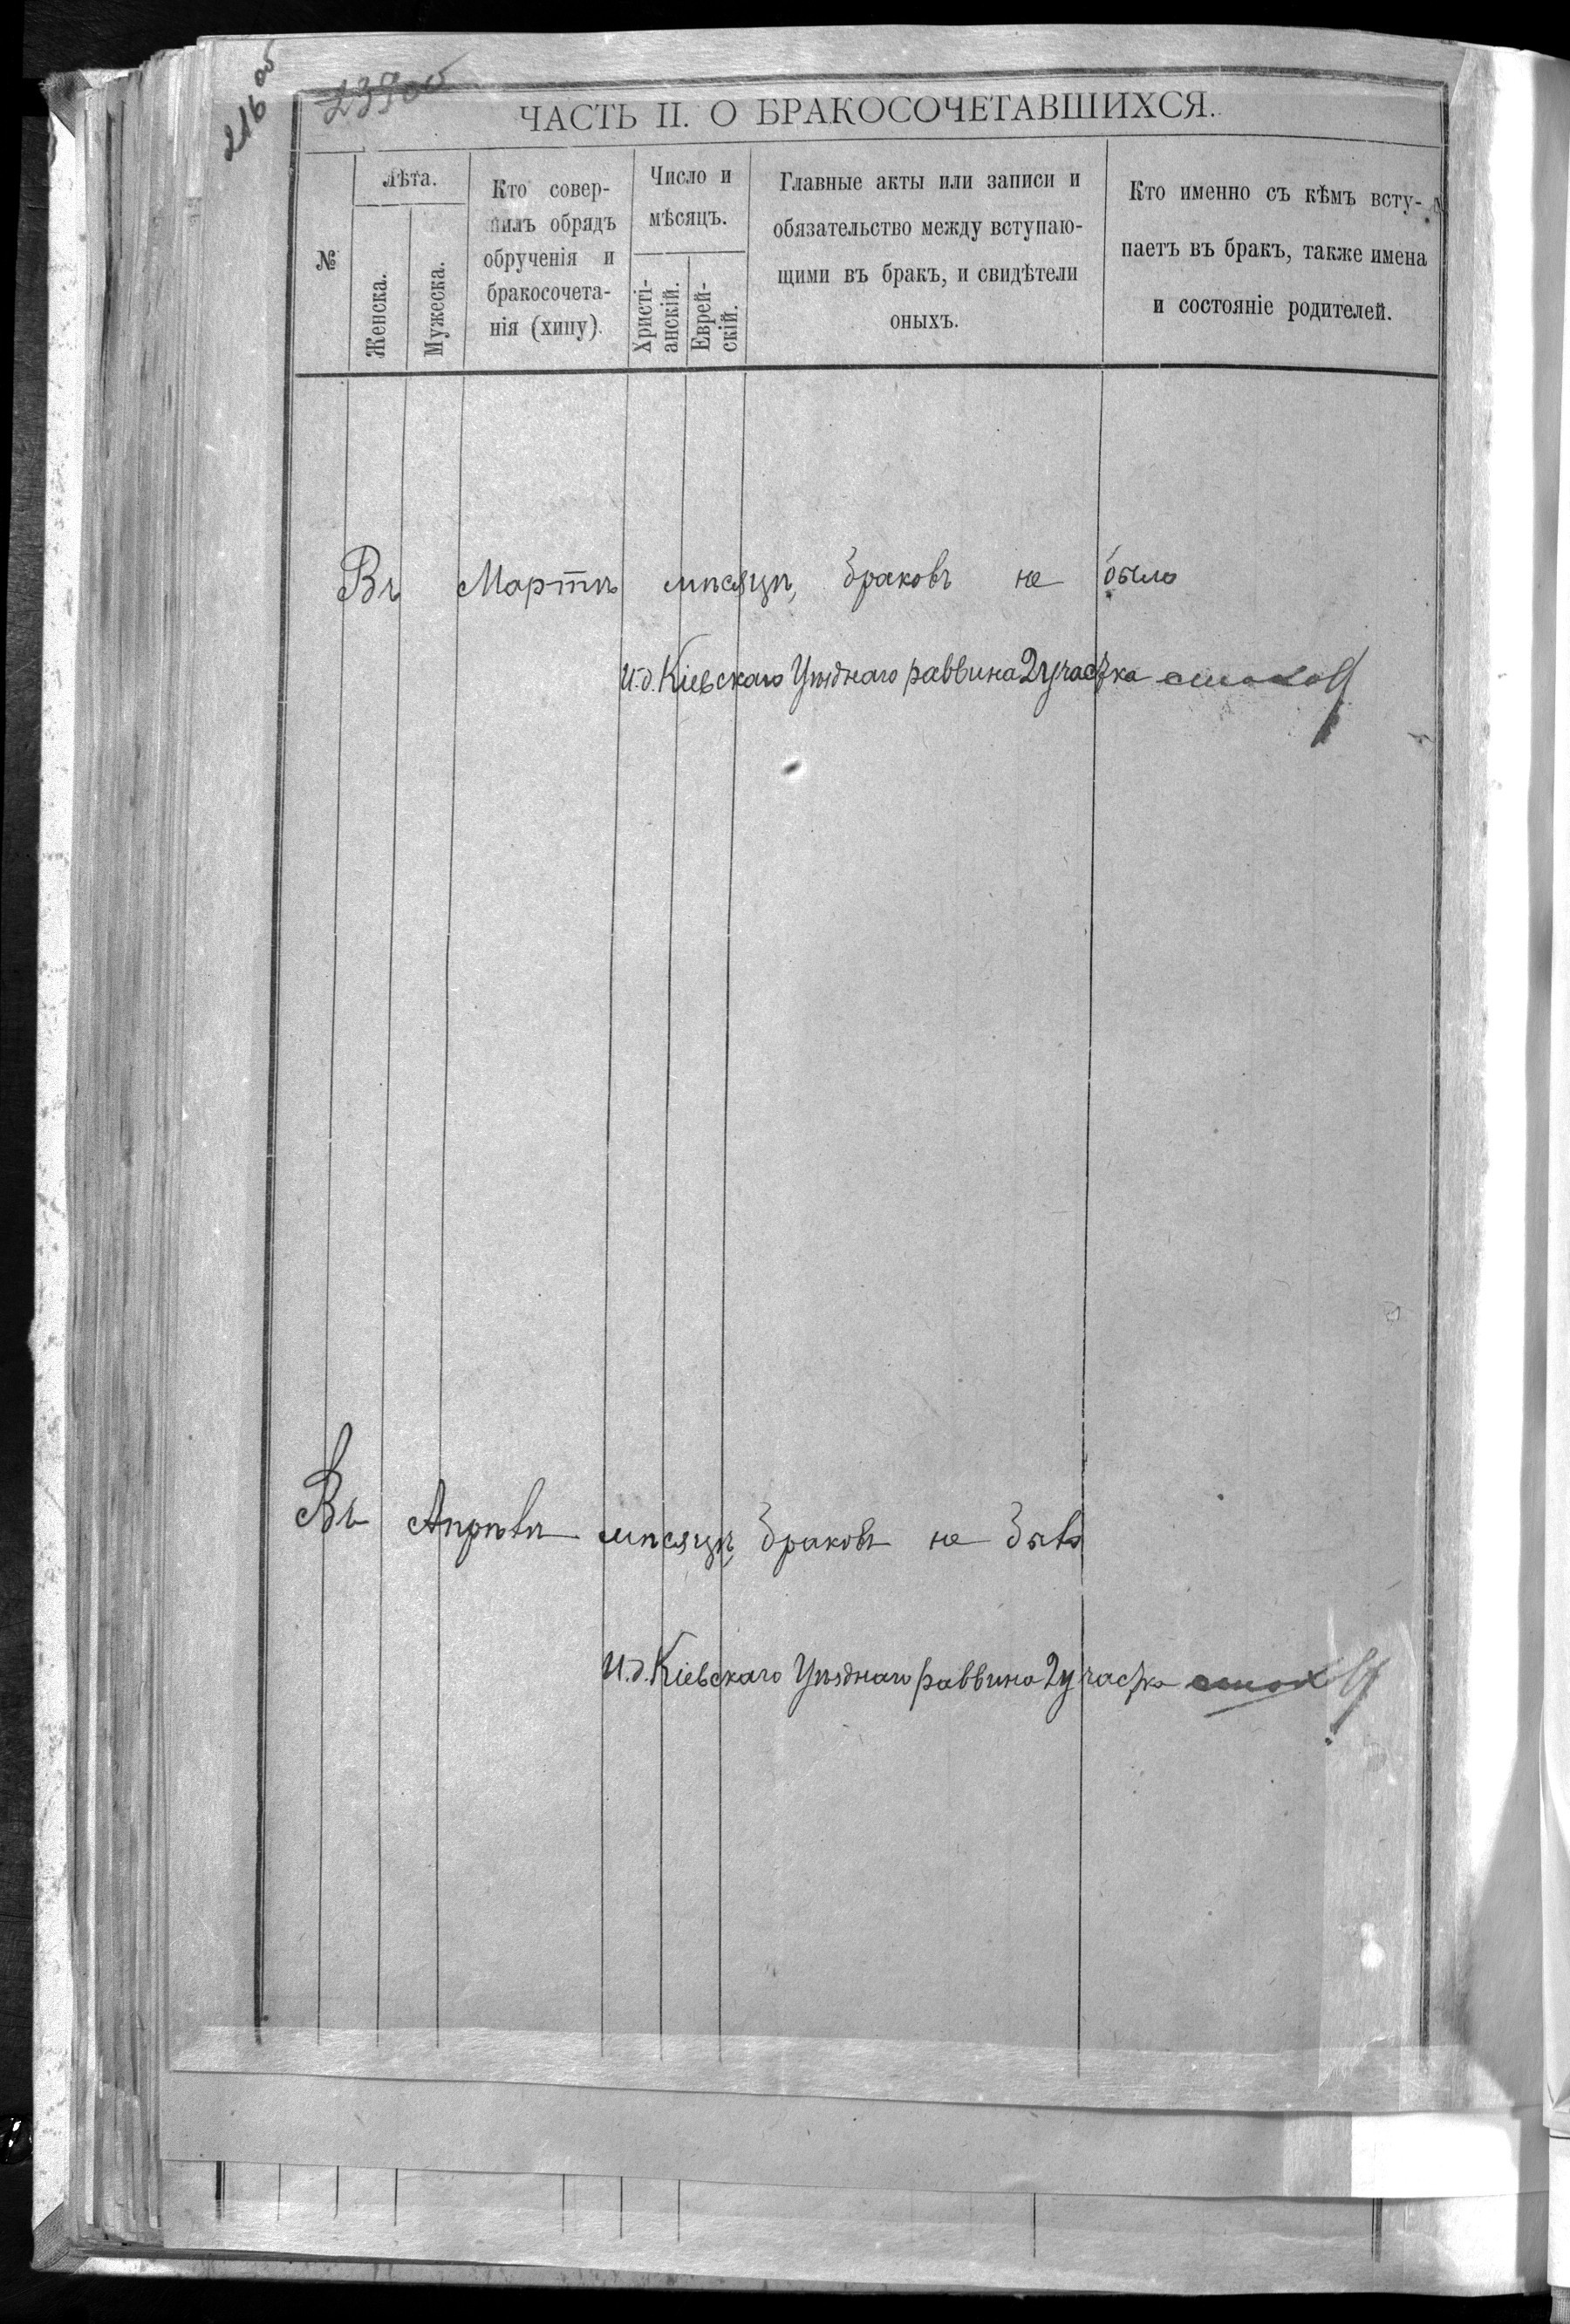 216 об
239 об
ЧАСТЬ II. О БРАКОСОЧЕТАВШИХСЯ.
№
Лѣта.
Женска.
Мужеска.
Кто совер-
шилъ обрядъ
обрученія и
бракосочета-
нія (хипу).
Число и
мѣсяцъ.
Христі-
анскій.
Еврей-
скій.
Главные акты или записи и
обязательство между вступаю-
щими въ бракъ, и свидѣтели
оныхъ.
Кто именно съ кѣмъ всту-
паетъ въ бракъ, также имена
и состояніе родителей.
Въ Мартѣ мѣсяцѣ, браковъ не было
И. д. Кіевскаго Уѣзднаго раввина 2 участка
Въ Апрѣлѣ мѣсяцѣ, браковъ не было
И. д. Кіевскаго Уѣзднаго раввина 2 участка